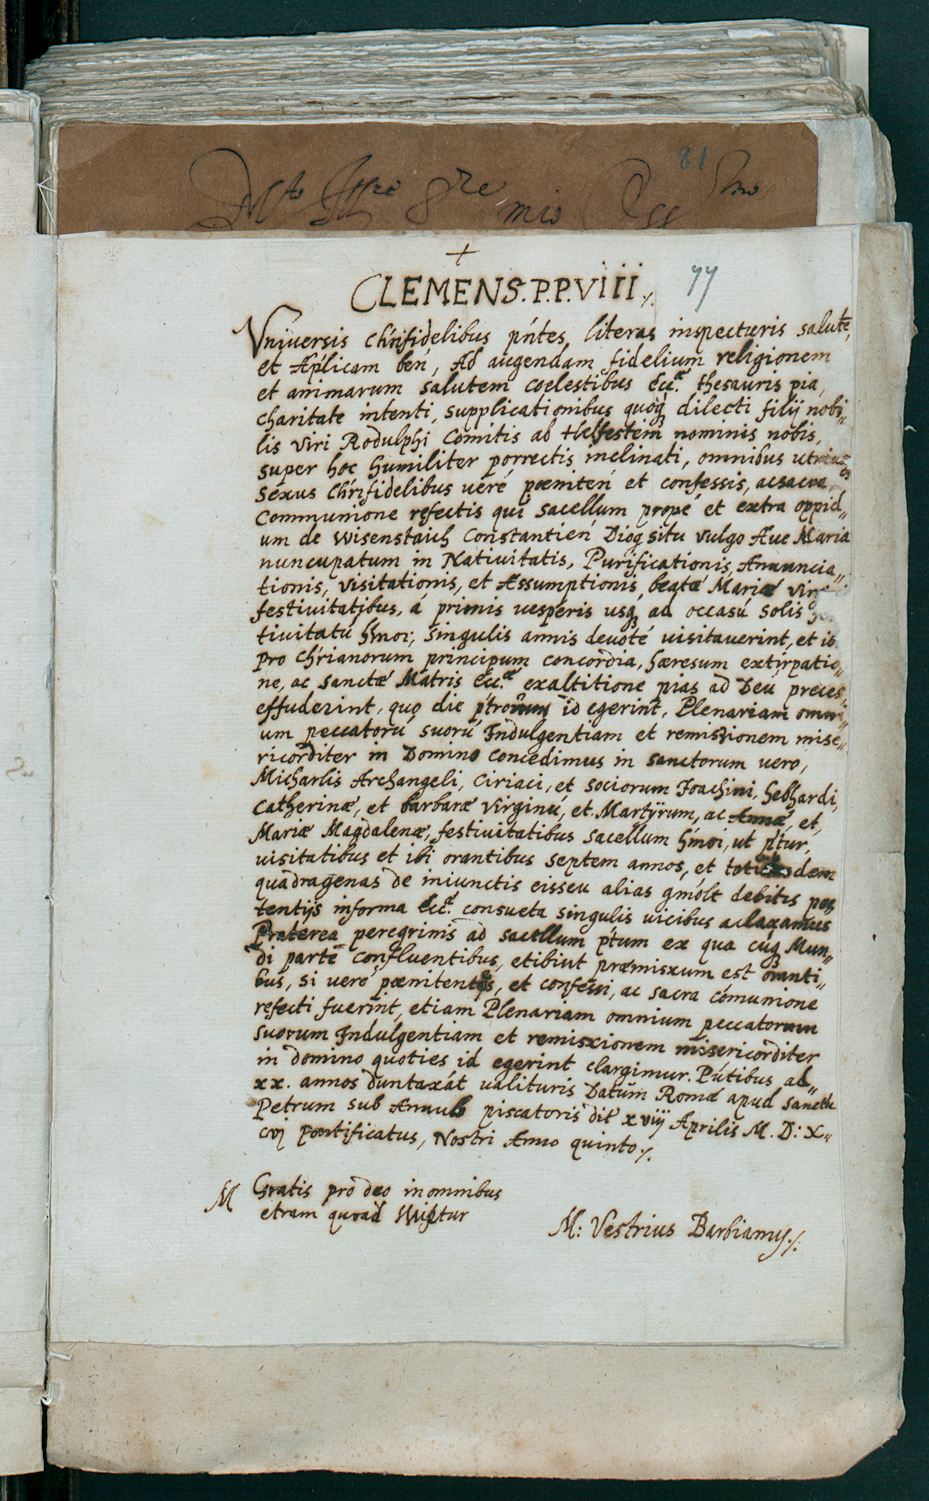 81
mio
+
CLEMENS. P.P. VIII ./.
77
Vniuersis chrifidelibus pn̄tes, literas inspecturis salutē,
et Aplicam ben, Ad augendam fidelium religionem
et animarum salutem coelestibus Ecc.ᵉ thesauris pia,
charitate intenti, supplicationibus quoq; dilecti filij nobi„
lis viri Rodulphi Comitis ab Helfestein nominis nobis,
super hoc humiliter porrectis inclinati, omnibus utrius„
sexus Chrifidelibus veré poeniten et confessis, ac sacra
Communione refectis qui sacellum propé et extra oppid„
um de Wisenstaich Constantien Dioq situ vulgo Aue Maria
nuncupatum in Natiuitatis, Purificationis, Annuncia„
tionis, visitationis, et Assumptionis, beatæ Mariæ vir
festiuitatibus, á primis uesperis usq; ad occasú solis
tiuitatú hmōi; singulis annis deuoté uisitauerint, et ib
pro chrianorum principum concordia, hæresum extirpatio„
ne, ac sanctæ Matris Ecc.ᵉ exaltitione pias ad Deú preces
effuderint, quo die ptrorum id egerint, Plenariam omni„
um peccatorú suorú Indulgentiam et remissionem mise„
ricorditer in Domino concedimus in sanctorum uero,
Micharlis Archangeli, Ciriaci, et sociorum Joachini, Gebhardi,
Catherinæ, et barbaræ virginú, et Martyrum, ac Annæ, et,
Mariæ Magdalenæ, festiuitatibus sacellum hmōi, ut ptur,
uisitatibus et ibi orantibus septem annos, et totidem
quadragenas de iniunctis eisseu alias gmolt debitis poe
tentijs informa Ecc.ᵉ consueta singulis uicibus aclaxamus
Prætérea peregrinis ad sacellum ptum ex qua cúq; Mun„
di parte confluentibus, etibiut præmissum est oranti„
bus, si ueré poenitentes, et confessi, ac sacra cómunione
refecti fuerint, etiam Plenariam omnium peccatorum
suorum Indulgentiam et remissionem misericorditer
in domino quoties id egerint clargimur. Pn̄tibus ad„
xx. annos duntaxát ualituris Datum Romæ apud Sanctū
Petrum sub Annulo piscatoris die xviij Aprilis M. D: X„
cvj Pontificatus, Nostri Anno quinto ./.
M Gratis pro deo inomnibus
etram quoad
M: Vestrius Barbianus ./.